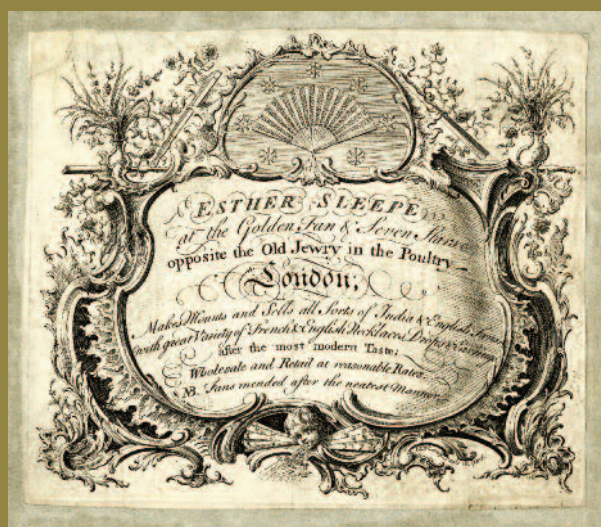 ESTHER SLEEPE
at the Golden Fan & Seven Stars
opposite the Old Jewry in the Poultry
London;
Makes Mounts and Sells all Sorts of India & English Fans
with great Variety of French & English Necklaces, Drops &
after the most modern Taste;
Wholesale and Retail at reasonable Rates.
NB. Fans mended after the neatest Manner